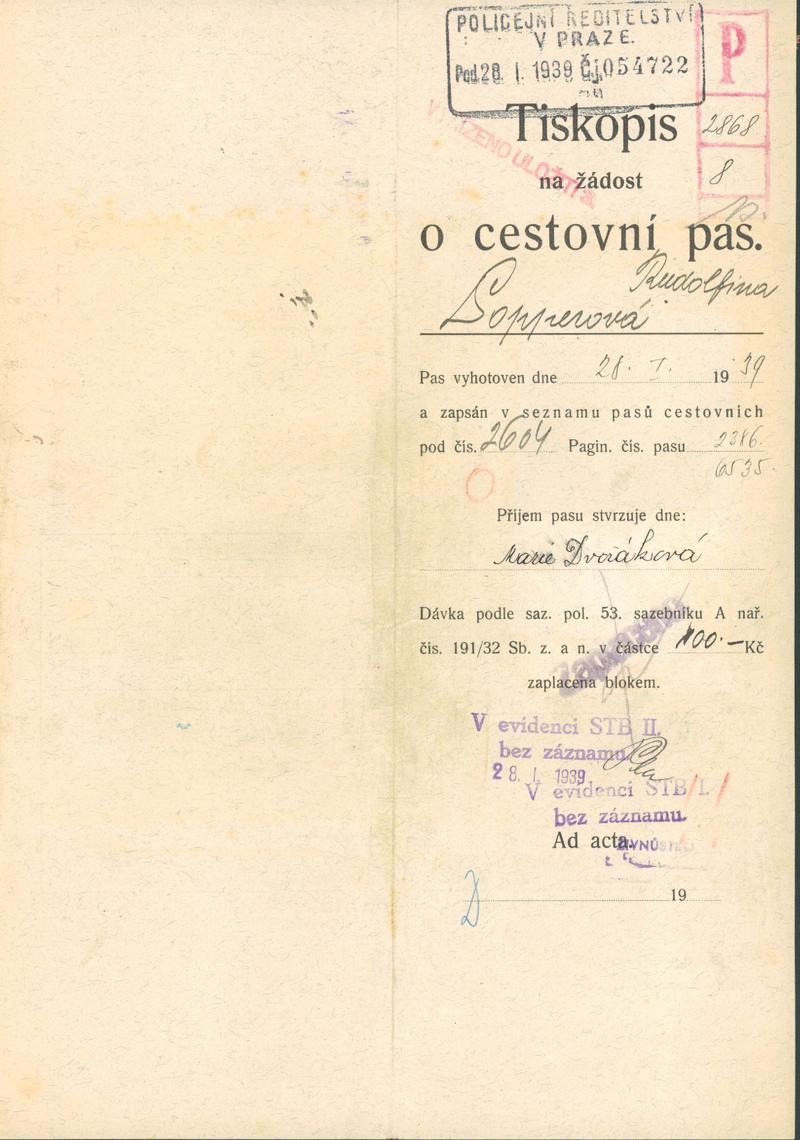 POLICEJNÍ ŘEDITELSTVÍ
V PRAZE.
Pod. 28. I. 1939 Čj. 054722
P
Tiskopis
2868
VYŘÍZENO ULOŽITI
na žádost
8
o cestovní pas.
Rudolfina
Lopperová
Pas vyhotoven dne 28. I. 1939
a zapsán v seznamu pasů cestovních
pod čís. 2604 Pagin. čís. pasu 2386.
6535.
Příjem pasu stvrzuje dne:
Marie Dvořáková
Dávka podle saz. pol. 53. sazebníku A nař.
čís. 191/32 Sb. z. a n. v částce 100.— Kč
Zaplaceno
zaplacena blokem.
V evidenci STB II.
bez záznamu
28. I. 1939
V evidenci STB I.
bez záznamu.
Ad acta.
19